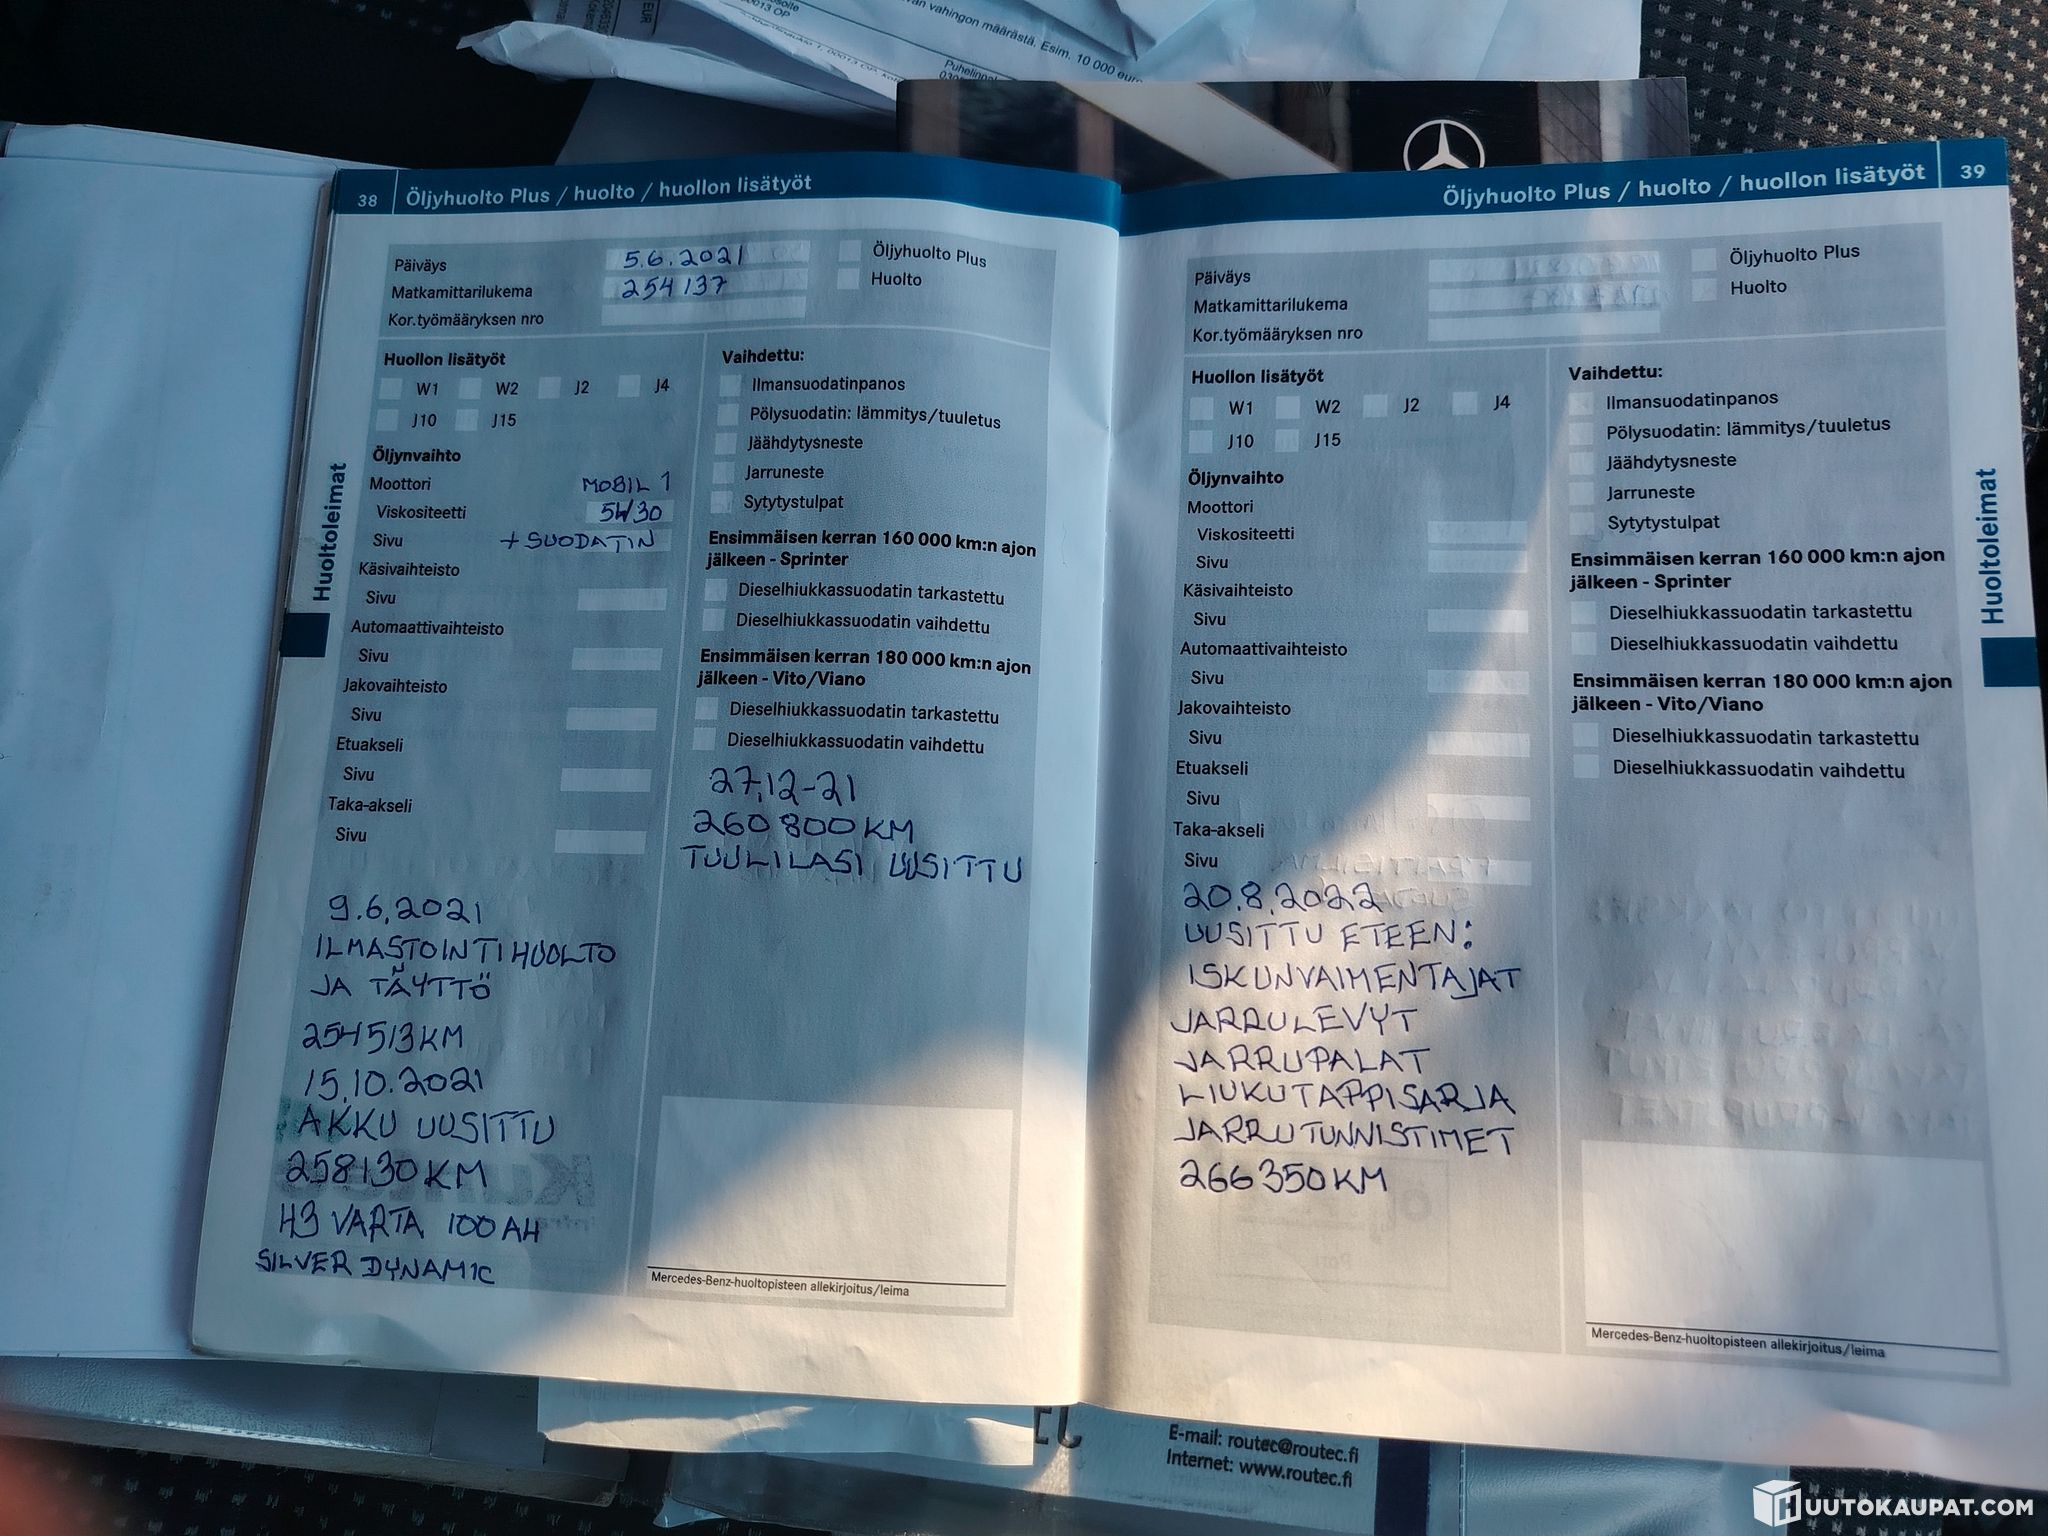 vahingon määrästä. Esim. 10 000 euro
00013 OP
EUR
38 Öljyhuolto Plus / huolto / huollon lisätyöt
Päiväys 5.6.2021
Matkamittarilukema 254137
Kor.työmääryksen nro
Öljyhuolto Plus
Huolto
Huollon lisätyöt
W1 W2 J2 J4
J10 J15
Öljynvaihto
Moottori MOBIL 1
Viskositeetti 5W30
Sivu + SUODATIN
Käsivaihteisto
Sivu
Automaattivaihteisto
Sivu
Jakovaihteisto
Sivu
Etuakseli
Sivu
Taka-akseli
Sivu
9.6.2021
ILMASTOINTIHUOLTO
JA TÄYTTÖ
254513KM
15.10.2021
AKKU UUSITTU
258130KM
H3 VARTA 100AH
SILVER DYNAMIC
Vaihdettu:
Ilmansuodatinpanos
Pölysuodatin: lämmitys/tuuletus
Jäähdytysneste
Jarruneste
Sytytystulpat
Ensimmäisen kerran 160 000 km:n ajon
jälkeen - Sprinter
Dieselhiukkassuodatin tarkastettu
Dieselhiukkassuodatin vaihdettu
Ensimmäisen kerran 180 000 km:n ajon
jälkeen - Vito/Viano
Dieselhiukkassuodatin tarkastettu
Dieselhiukkassuodatin vaihdettu
27.12-21
260800KM
TUULILASI UUSITTU
Mercedes-Benz-huoltopisteen allekirjoitus/leima
Huoltoleimat
Öljyhuolto Plus / huolto / huollon lisätyöt 39
Päiväys
Matkamittarilukema
Kor.työmääryksen nro
Öljyhuolto Plus
Huolto
Huollon lisätyöt
W1 W2 J2 J4
J10 J15
Öljynvaihto
Moottori
Viskositeetti
Sivu
Käsivaihteisto
Sivu
Automaattivaihteisto
Sivu
Jakovaihteisto
Sivu
Etuakseli
Sivu
Taka-akseli
Sivu
20.8.2022
UUSITTU ETEEN:
ISKUNVAIMENTAJAT
JARRULEVYT
JARRUPALAT
LIUKUTAPPISARJA
JARRUTUNNISTIMET
266350KM
Vaihdettu:
Ilmansuodatinpanos
Pölysuodatin: lämmitys/tuuletus
Jäähdytysneste
Jarruneste
Sytytystulpat
Ensimmäisen kerran 160 000 km:n ajon
jälkeen - Sprinter
Dieselhiukkassuodatin tarkastettu
Dieselhiukkassuodatin vaihdettu
Ensimmäisen kerran 180 000 km:n ajon
jälkeen - Vito/Viano
Dieselhiukkassuodatin tarkastettu
Dieselhiukkassuodatin vaihdettu
Mercedes-Benz-huoltopisteen allekirjoitus/leima
Huoltoleimat
E-mail: routec@routec.fi
Internet: www.routec.fi
HUUTOKAUPAT.COM